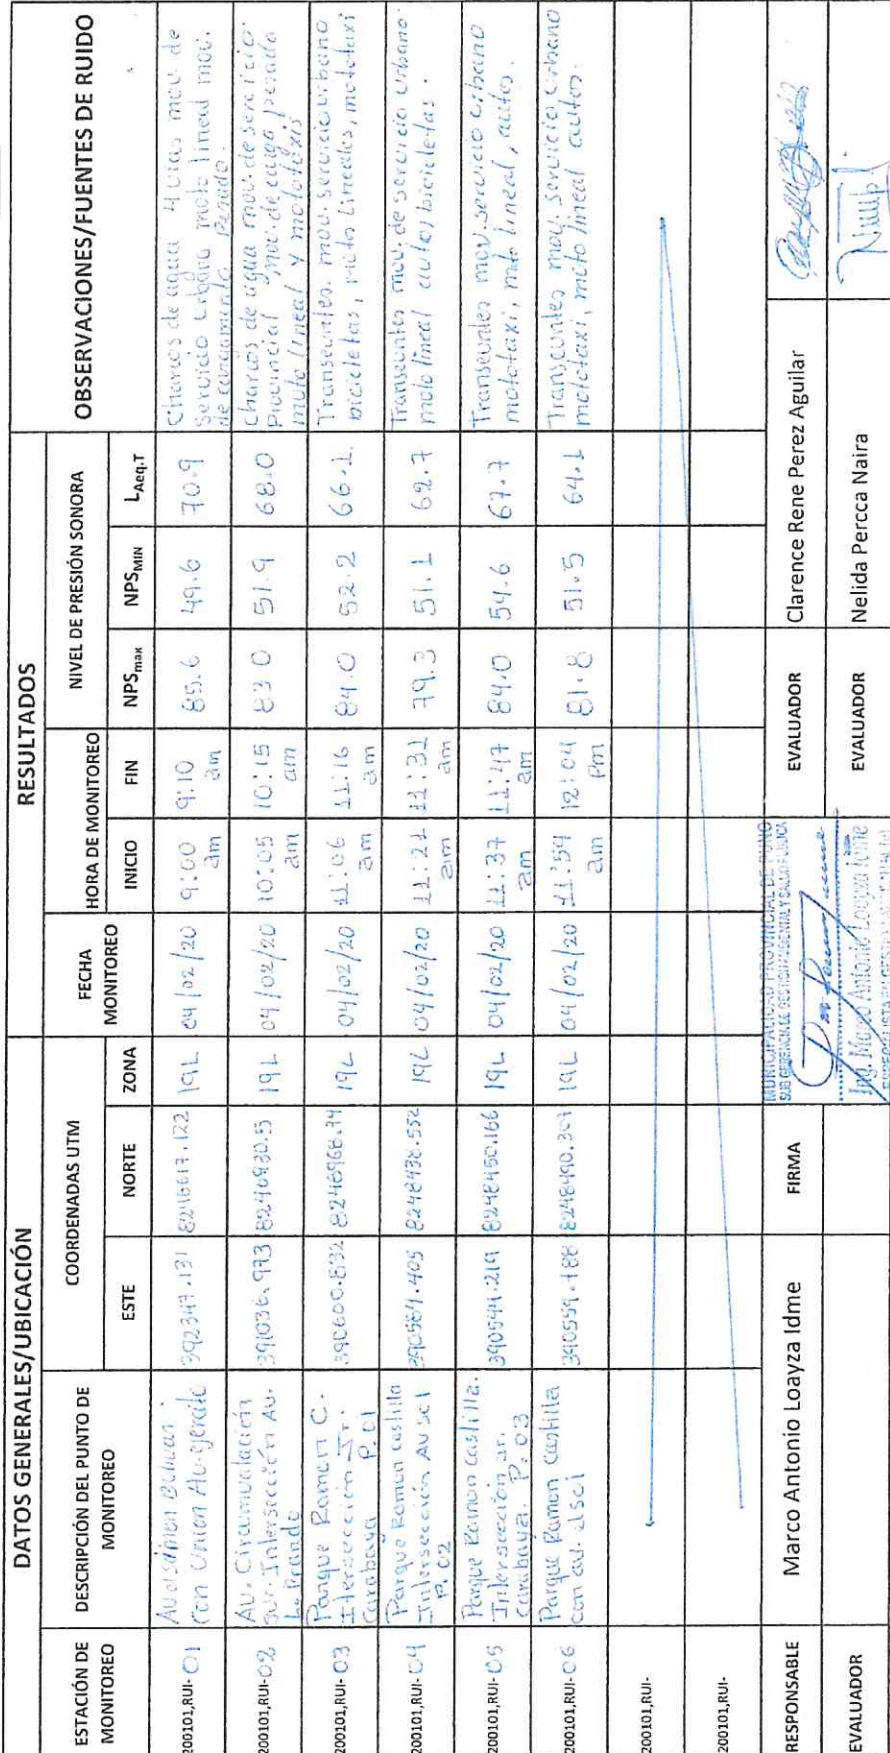 DATOS GENERALES/UBICACIÓN RESULTADOS
ESTACIÓN DE MONITOREO DESCRIPCIÓN DEL PUNTO DE MONITOREO COORDENADAS UTM FECHA MONITOREO HORA DE MONITOREO NIVEL DE PRESIÓN SONORA OBSERVACIONES/FUENTES DE RUIDO
ESTE NORTE ZONA INICIO FIN NPSmax NPSMIN LAeq.T
200101,RUI-01
con Union Av. ejercito
392347.131 8246617.122 19L 04/02/20 9:00 am 9:10 am 85.6 49.6 70.9
Charcos de agua 4 vias mov. de
servicio urbano moto lineal mov.
de pesado.
200101,RUI-02
Av. Circunvalación
Sur. Intersección Av.
391036.973 8246930.5 19L 04/02/20 10:05 am 10:15 am 83.0 51.9 68.0
Charcos de agua mov. de servicio
Provincial mov. de carga pesada
moto lineal y mototaxis
200101,RUI-03
Parque Ramon C.
Itersección Jr.
Carabaya P.01
390600.832 8248968.74 19L 04/02/20 11:06 am 11:16 am 84.0 52.2 66.1
Transeuntes. mov. servicio urbano
bicicletas, moto Lineales, mototaxi
200101,RUI-04
Parque Ramon castilla
Intersección Av sol
P.02
390561.405 8248438.552 19L 04/02/20 11:21 am 11:31 am 79.3 51.1 62.7
Transeuntes mov. de servicio urbano.
moto lineal autos bicicletas.
200101,RUI-05
Parque Ramon castilla.
Intersección Jr.
carabaya. P.03
390544.219 8248450.166 19L 04/02/20 11:37 am 11:47 am 84.0 54.6 67.7
Transeuntes mov. servicio urbano
mototaxi, moto lineal, autos.
200101,RUI-06
Parque Ramon Castilla
con av. elsol
390559.188 8248490.307 19L 04/02/20 11:54 am 12:04 Pm 81.8 51.5 64.1
Transeuntes mov. servicio urbano
mototaxi, moto lineal autos.
200101,RUI-
200101,RUI-
RESPONSABLE Marco Antonio Loayza Idme FIRMA EVALUADOR Clarence Rene Perez Aguilar
EVALUADOR EVALUADOR Nelida Percca Naira
MUNICIPALIDAD PROVINCIAL DE PUNO
SUB GERENCIA DE GESTION AMBIENTAL Y SALUD PUBLICA
Ing. Marco Antonio Loayza Idme